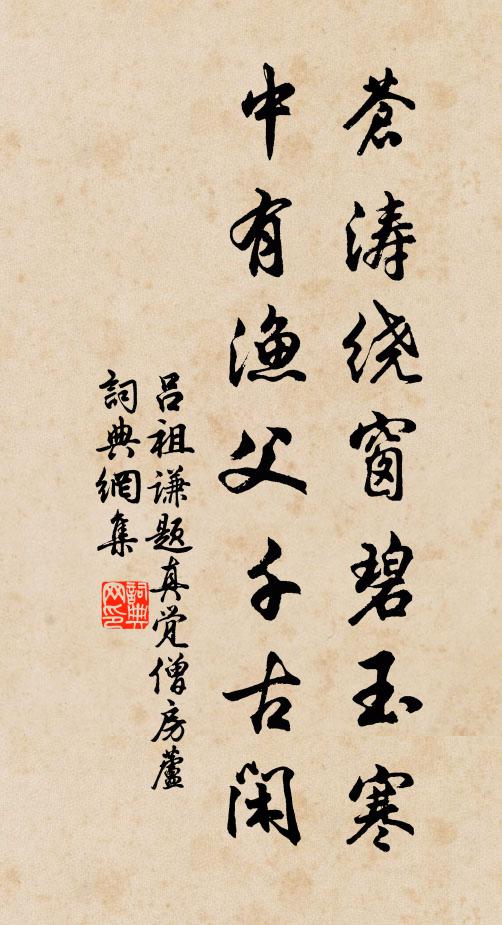 苍涛绕窗碧玉寒
中有渔父千古闲
吕祖谦题真觉僧房蘆
詞典網集
詞典网印